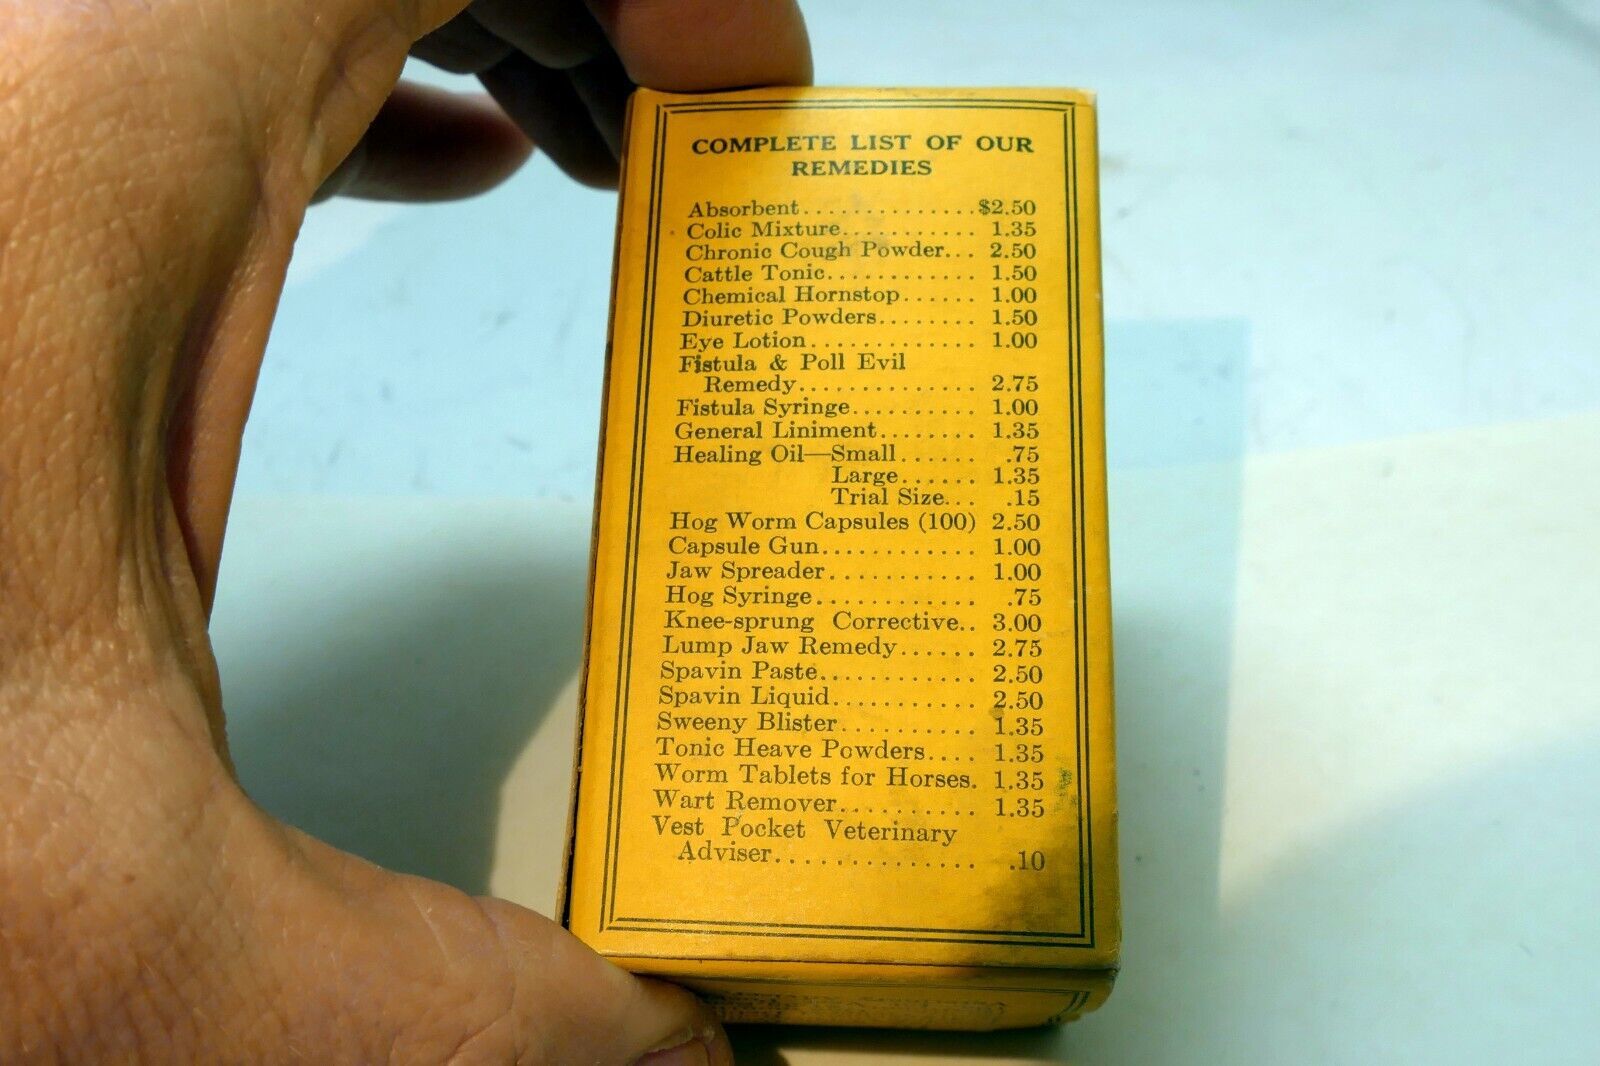 COMPLETE LIST OF OUR
REMEDIES
Absorbent..............$2.50
Colic Mixture........... 1.35
Chronic Cough Powder... 2.50
Cattle Tonic............ 1.50
Chemical Hornstop...... 1.00
Diuretic Powders........ 1.50
Eye Lotion............. 1.00
Fistula & Poll Evil
Remedy.............. 2.75
Fistula Syringe.......... 1.00
General Liniment........ 1.35
Healing Oil—Small...... .75
Large...... 1.35
Trial Size... .15
Hog Worm Capsules (100) 2.50
Capsule Gun............ 1.00
Jaw Spreader........... 1.00
Hog Syringe............ .75
Knee-sprung Corrective.. 3.00
Lump Jaw Remedy...... 2.75
Spavin Paste............ 2.50
Spavin Liquid........... 2.50
Sweeny Blister.......... 1.35
Tonic Heave Powders.... 1.35
Worm Tablets for Horses. 1.35
Wart Remover.......... 1.35
Vest Pocket Veterinary
Adviser............... .10